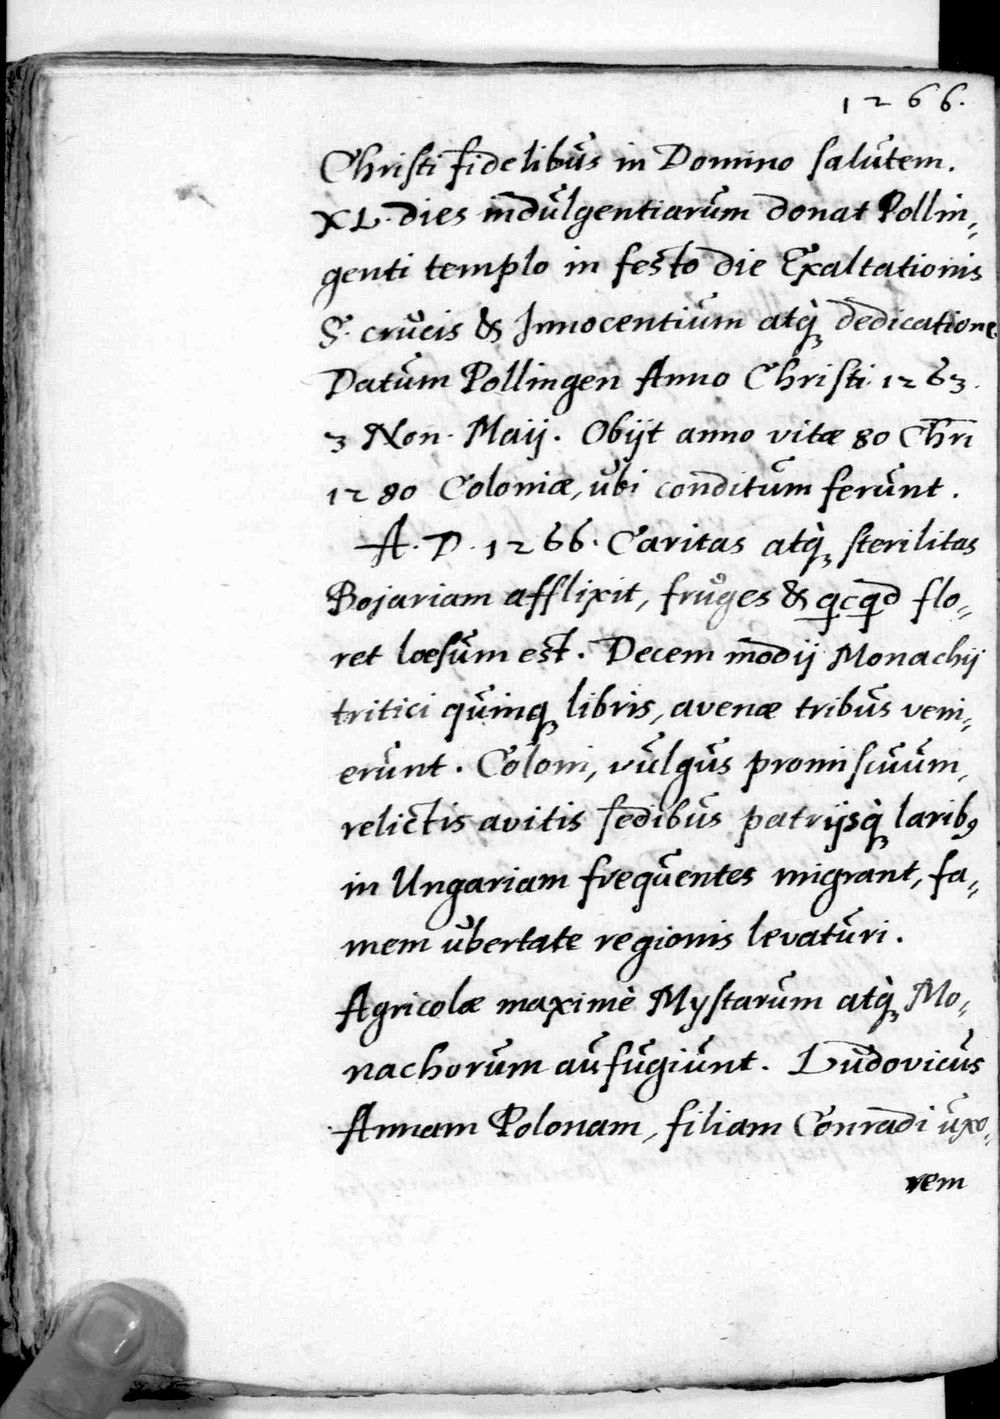 1266.
Christi fidelibus in Domino salutem.
XL. dies indulgentiarum donat Pollin„
genti templo in festo die Exaltationis
S. crucis & Innocentium atq; dedicatione
Datum Pollingen Anno Christi. 1263.
3 Non. Maij. Obijt anno vitæ 80 Chri̅
1280 Coloniæ, ubi conditum ferunt.
A. D. 1266. Caritas atq; sterilitas
Bojariam afflixit, fruges & qcqd flo„
ret læsum est. Decem modij Monachij
tritici quinq; libris, avenæ tribus veni„
erunt. Coloni, vulgus promiscuum,
relictis avitis sedibus patrijsq; larib9
in Ungariam frequentes migrant, fa„
mem ubertate regionis levaturi.
Agricolæ maximè Mystarum atq; Mo„
nachorum aufugiunt. Ludovicus
Annam Polonam, filiam Conradi uxo„
rem